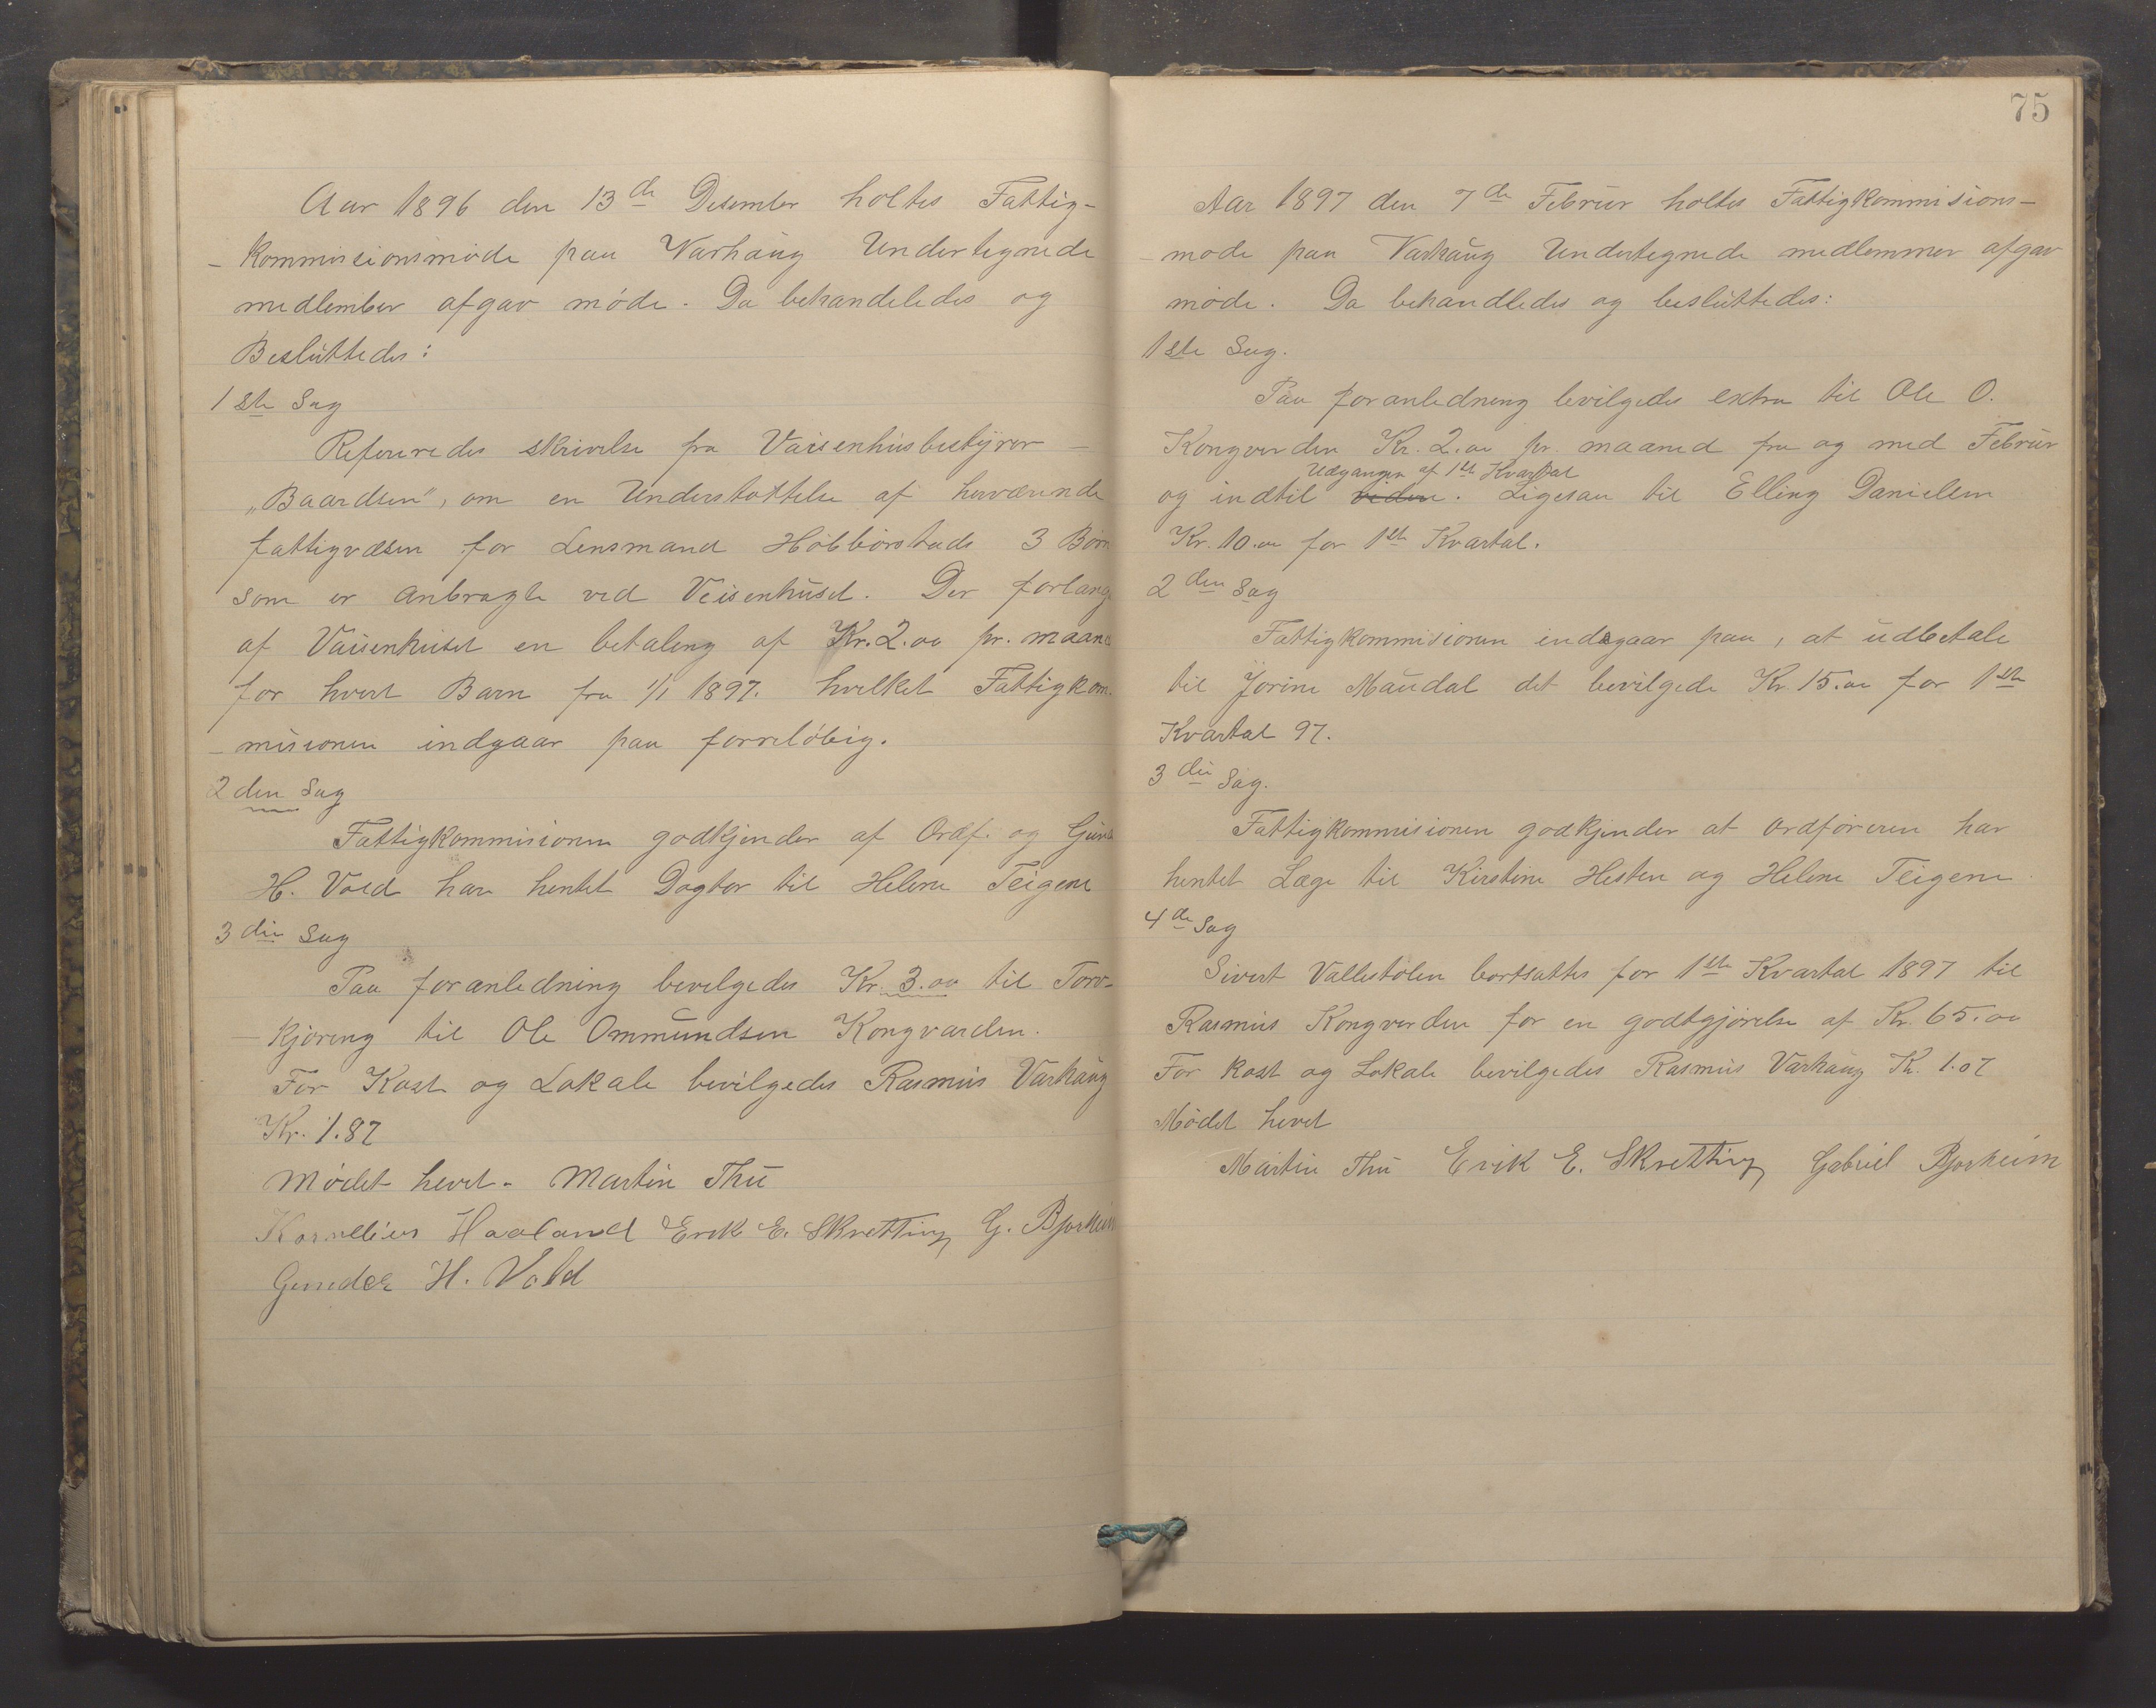 Aar 1896 den 13de Desember holtes Fattig-
- kommissionsmøde paa Varhaug Undertegnede
medlember afgav møde. Da behandeledes og
Besluttedes:
1ste Sag
Refereredes skrivelse fra Vaisenhusbestyrer -
"Baardsen", om en Understøttelse af herværende
fattigvæsen for Lensmand Høbbørstads 3 Børn
som er anbragte ved Veisenhuset. Der forlang
af Vaisenhuset en betaling af Kr. 2.00 pr. maaned
for hvert Barn fra 1/1 1897. hvilket Fattigkom-
- misionen indgaar paa forreløbig.
2den Sag
Fattigkommisionen godkjender at Ordf. og Gunder
H. Vold har hentet Dogtor til Helene Teigene
3die Sag
Paa foranledning bevilgedes Kr. 3.00 til Torv-
- kjøring til Ole Ommundsen Kongvarden.
For Kost og Lokale bevilgedes Rasmus Varhaug
Kr. 1.87
Mødet hevet. Martin Thu
Kornelius Haaland Erik E. Skretting G. Bjorheim
Gunder H. Vold
75
Aar 1897 den 7de Februr holtes Fattigkommisions-
- møde paa Varhaug Undertegnede medlemmer afgav
møde. Da behandledes og besluttedes:
1ste Sag.
Paa foranledning bevilgedes extra til Ole O.
Kongverden Kr. 2.00 pr. maaned fra og med Februr
Udgangen af 1ste Kvartal
og indtil viden. Ligesaa til Elling Danielsen
Kr. 10.00 for 1ste Kvartal.
2den Sag
Fattigkommisionen indgaar paa, at udbetale
til Jorine Maudal det bevilgede Kr. 15.00 for 1ste
Kvartal 97.
3die Sag.
Fattigkommisionen godkjender at ordføreren har
hentet Læge til Kirstine Hesten og Helene Teigene.
4de Sag
Sivert Vallestølen bortsattes for 1ste Kvartal 1897 til
Rasmus Kongverden for en godtgjørelse af Kr. 65.00
For kost og Lokale bevilgedes Rasmus Varhaug Kr. 1.07
Mødet hevet
Martin Thu Erik E. Skretting Gabriel Bjorheim